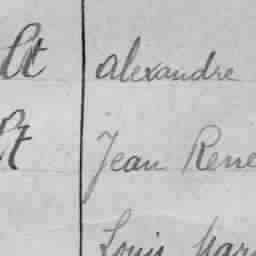 lt alexandre
lt Jean René
Louis Mar